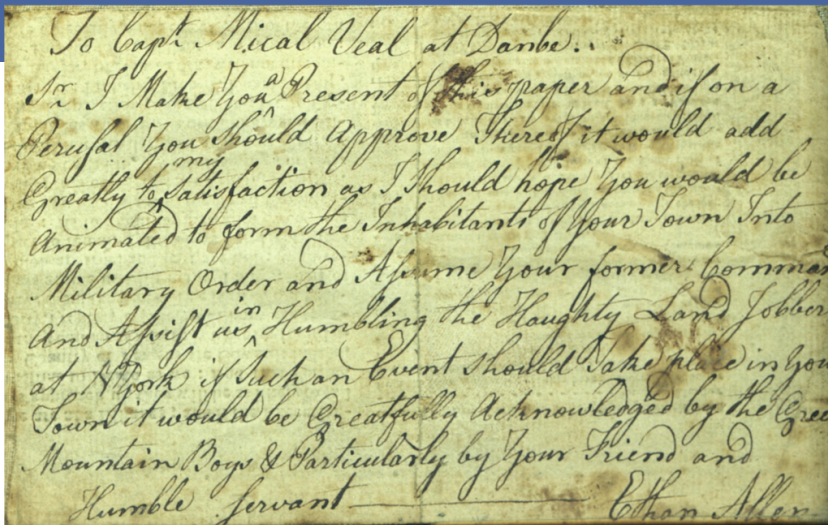 To Capt. Mical Veal at Danbe..
Sr I Make You a Present of this paper and if on a
Perusal You should Approve Thereof it would add
Greatly to my Satisfaction as I Should hope You would be
Animated to form the Inhabitants of Your Town Into
Military Order and Assume Your former Comman
And Assist us in Humbling the Haughty Land Jobber
at N York if Such an Event should Take place in You
Town it would be Greatfully Acknowledged by the Gree
Mountain Boys & Particularly by Your Friend and
Humble servant Ethan Allen